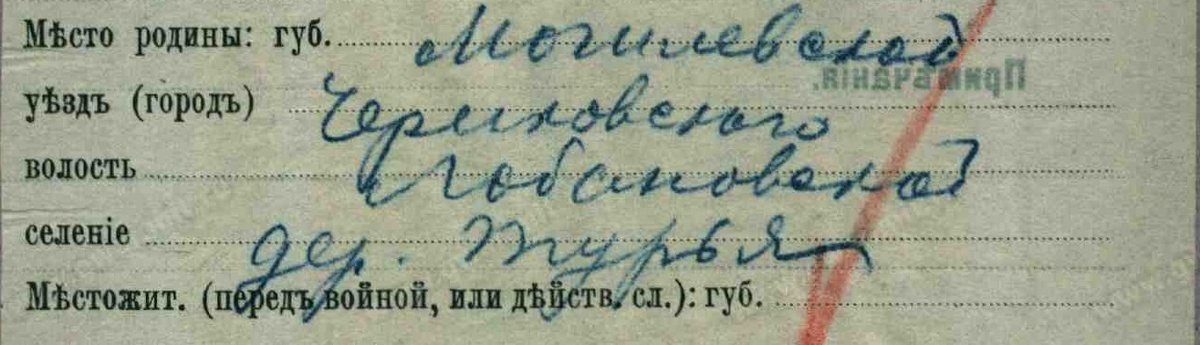 Мѣсто родины: губ. Могилевской
Примѣчанія.
уѣздъ (городъ) Чериковского
волость Лобановской
селеніе дер. Турья
Мѣстожит. (передъ войной, или дѣйств. сл.): губ.